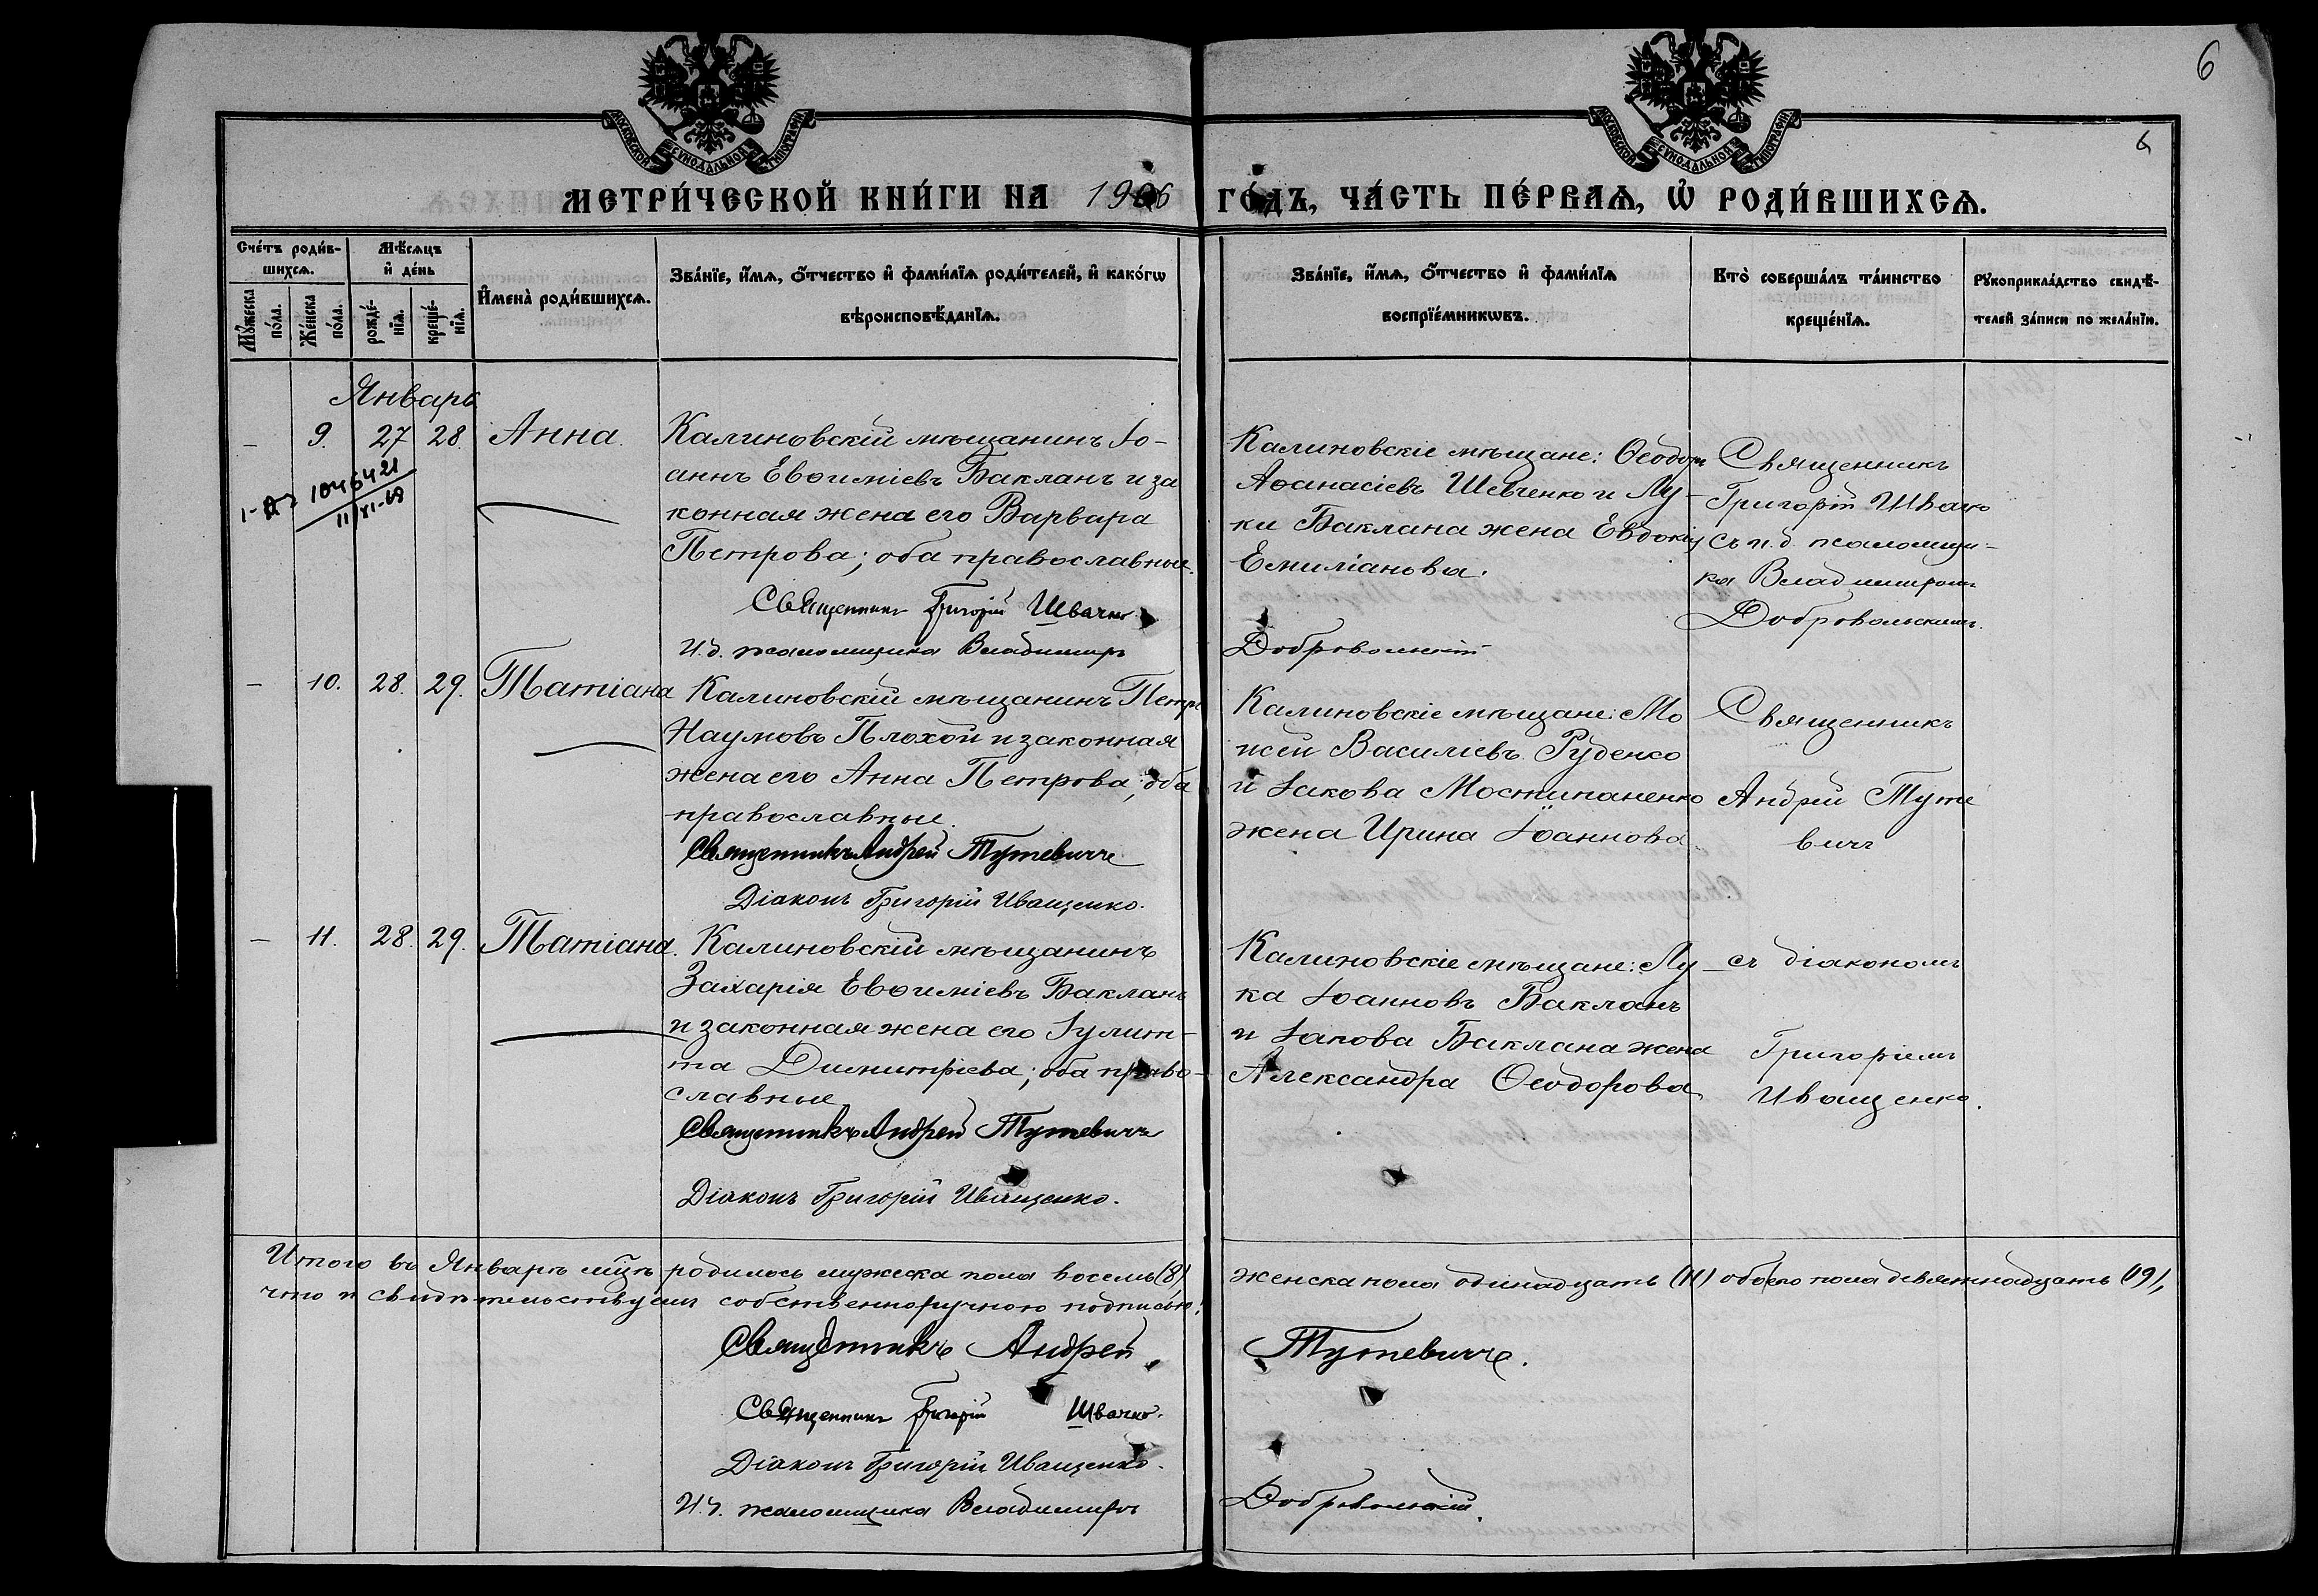 6
6
МОСКОВСКОЙ СѴНОДАЛЬНОЙ ТИПОГРАФІИ
МОСКОВСКОЙ СѴНОДАЛЬНОЙ ТИПОГРАФІИ
МЕТРИ́ЧЕСКОЙ КНИ́ГИ НА 1906 ГО́ДЪ, ЧА́СТЬ ПЕ́РВАѦ, Ѿ РОДИ́ВШИХСѦ.
Сче́тъ роди́в-
шихсѧ.
Мꙋ́жеска по́ла.
Же́нска по́ла.
Мѣ́сѧцъ
и҆ де́нь
рожде́-
нїѧ.
креще́-
нїѧ.
И҆мена̀ роди́вшихсѧ.
Зва́нїе, и҆́мѧ, ѻ҆́тчество и҆ фами́лїѧ роди́телей, и҆ како́гѡ
вѣроисповѣ́данїѧ.
Зва́нїе, и҆́мѧ, ѻ҆́тчество и҆ фами́лїѧ
воспрїе́мникѡвъ.
Кто̀ соверша́лъ та́инство
креще́нїѧ.
Рꙋкоприкла́дство свидѣ́-
телей за́писи по жела́нїю.
Январь
– 9. 27 28. Анна.
1046421
11/XI-69
Калиновскій мѣщанинъ Іо-
аннъ Евѳиміевъ Бакланъ и за
конная жена его Варвара
Петрова; оба православные.
Священникъ Григорій Швачко
И.д. псаломщика Владиміръ
Калиновскіе мѣщане: Ѳеодоръ
Аѳанасіевъ Шевченко и Лу-
ки Баклана жена Евдокія
Емиліанова.
Добровольскій
Священникъ
Григорій Швачко
съ и.д. псаломщи-
ка Владиміромъ
Добровольскимъ.
– 10. 28. 29. Татіана
Калиновскій мѣщанинъ Петръ
Наумовъ Плохой и законная
жена его Анна Петрова; оба
православные.
Священникъ Андрей Тутевичъ
Діаконъ Григорій Иващенко.
Калиновскіе мѣщане: Мо
исей Василіевъ Руденко
и Іакова Мостипаненко
жена Ирина Іоаннова
Священникъ
Андрей Туте
вичъ
– 11. 28. 29. Татіана.
Калиновскій мѣщанинъ
Захарія Евѳиміевъ Бакланъ
и законная жена его Іулит-
та Димитріева; оба право-
славные
Священникъ Андрей Тутевичъ
Діаконъ Григорій Иващенко.
Калиновскіе мѣщане: Лу-
ка Іоанновъ Бакланъ
и Іакова Баклана жена
Александра Ѳеодорова
съ діакономъ
Григоріемъ
Иващенко.
Итого въ Январѣ мцѣ родилось мужеска пола восемь (8) женска пола одинадцать (11) обоего пола девятнадцать (19),
что и свидѣтельствуемъ собственноручною подписью:
Священникъ Андрей Тутевичъ.
Священникъ Григорій Швачко.
Діаконъ Григорій Иващенко.
И.д. псаломщика Владиміръ Добровольскій.